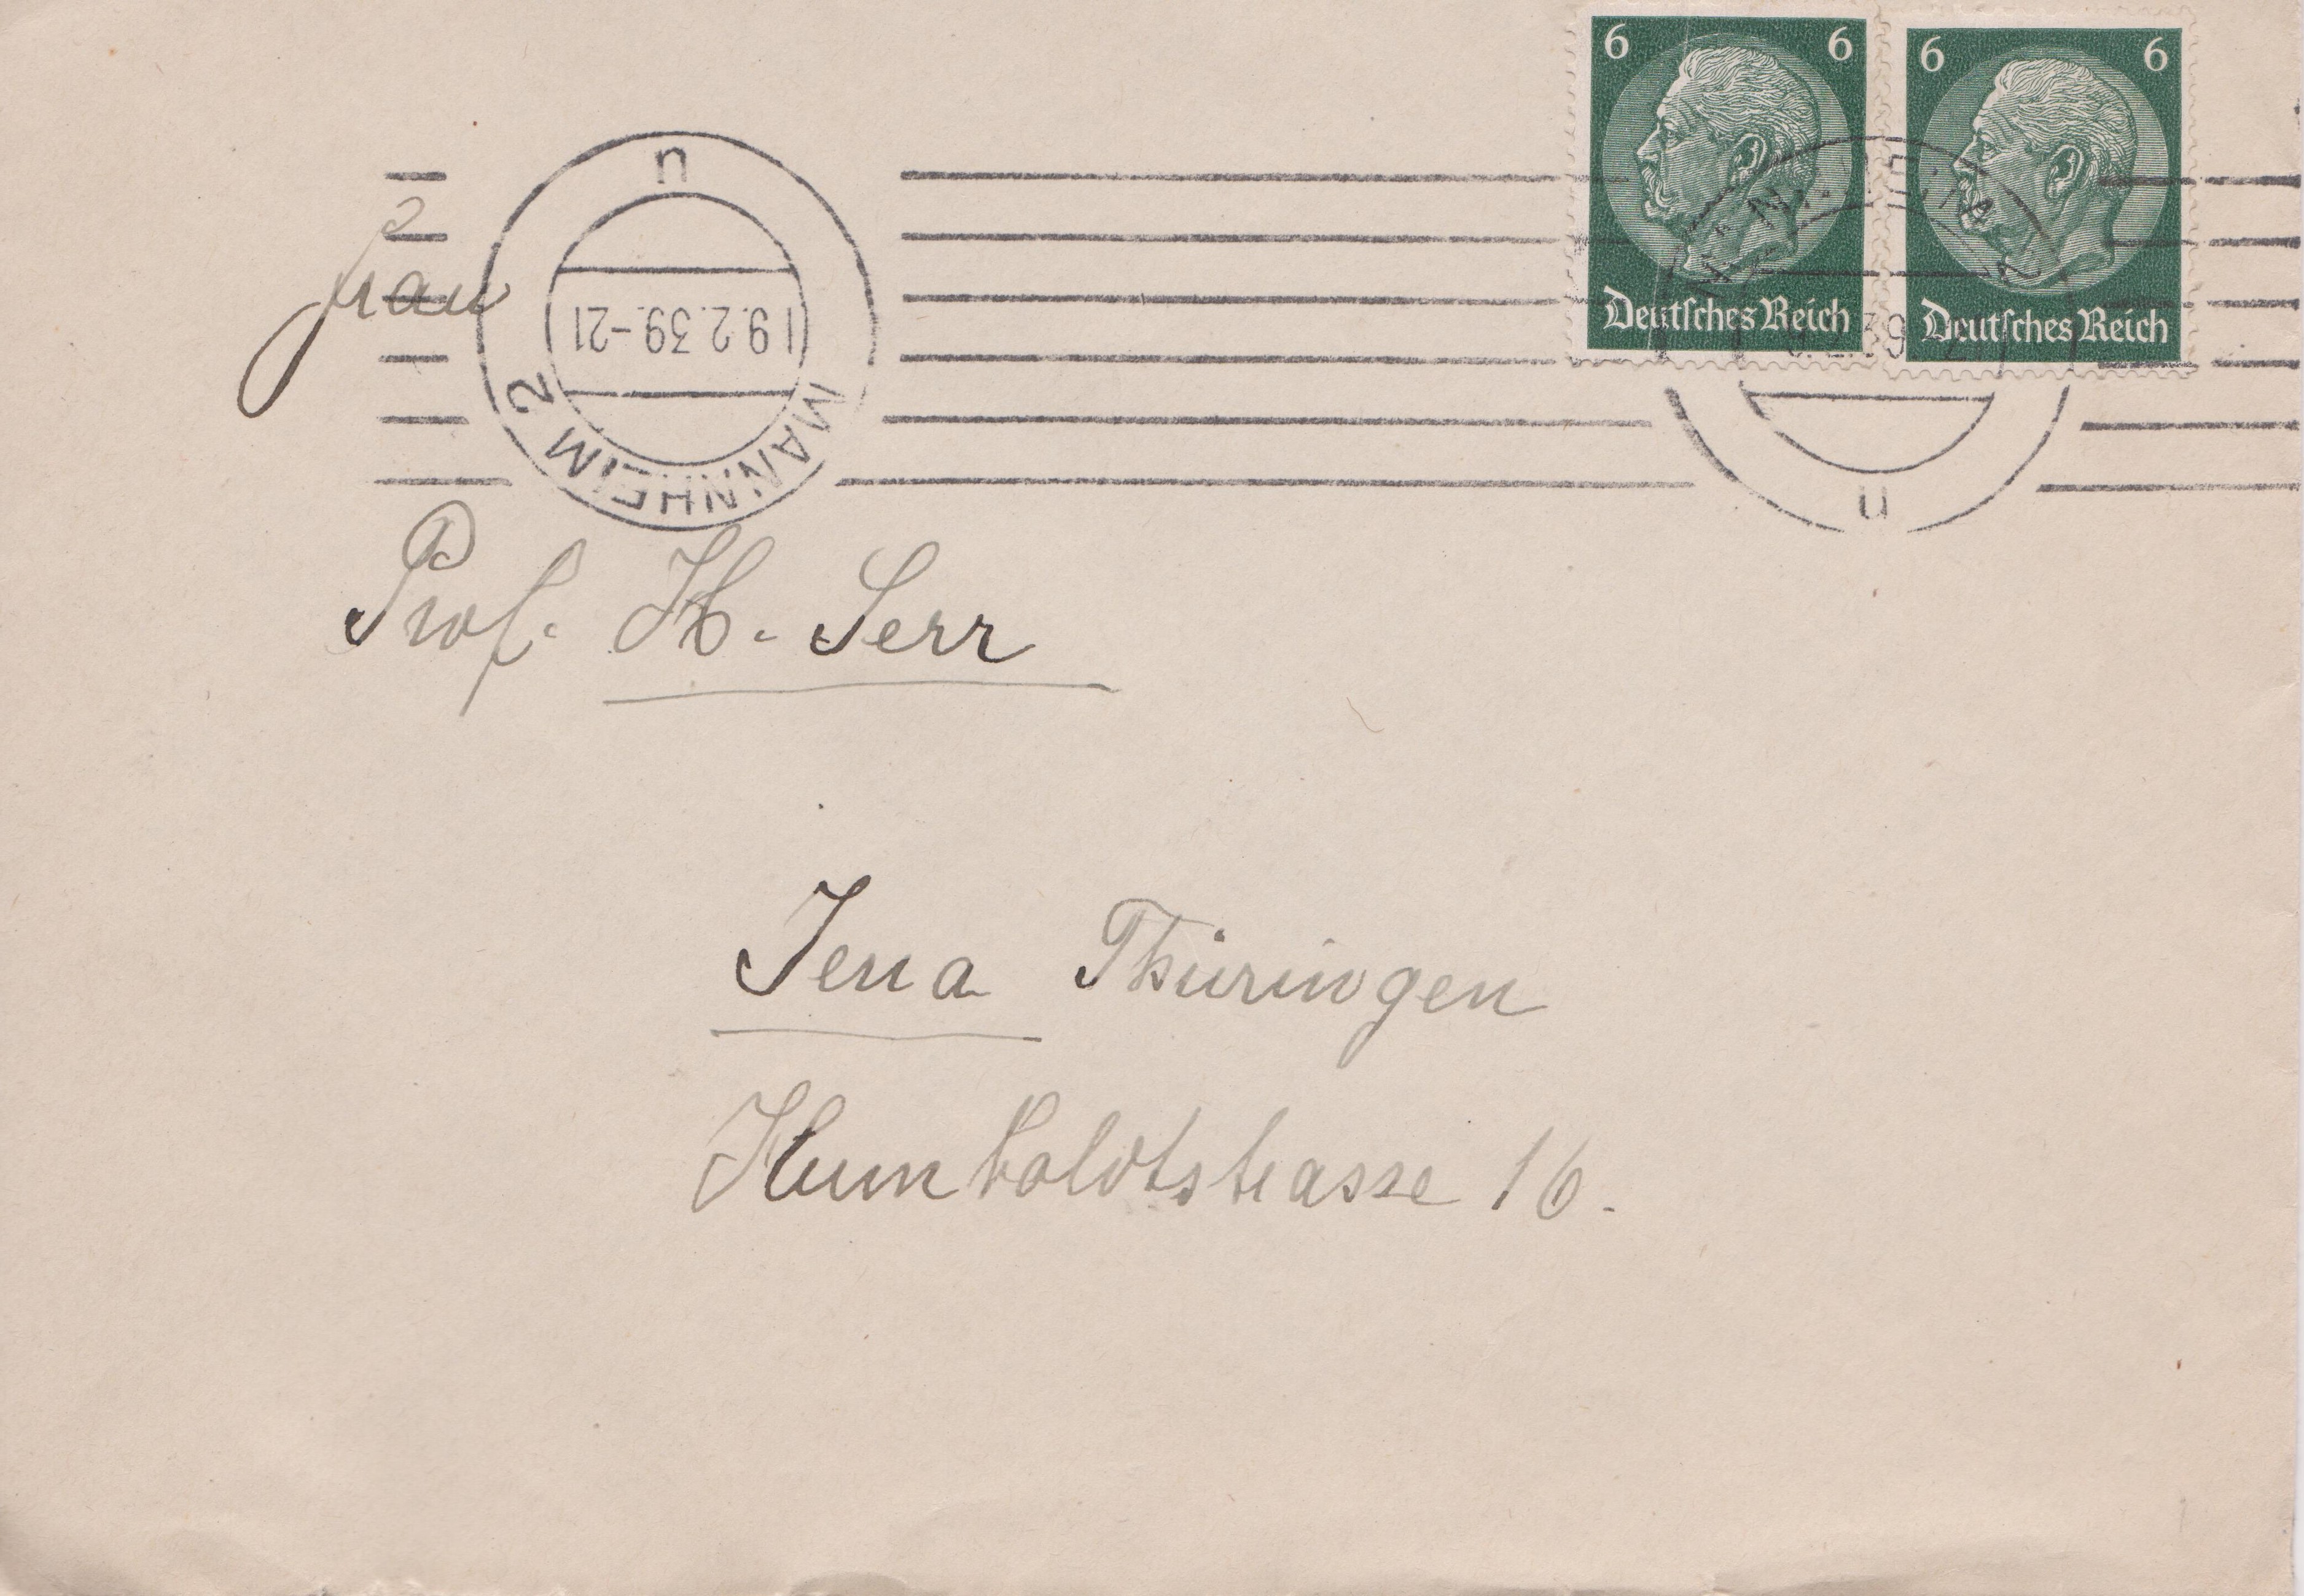 6 6 6 6
Deutsches Reich Deutsches Reich
u
19.2.39.-21
MANNHEIM 2
u
Frau
Prof. H. Serr
Jena Thüringen
Humboldtstrasse 16.